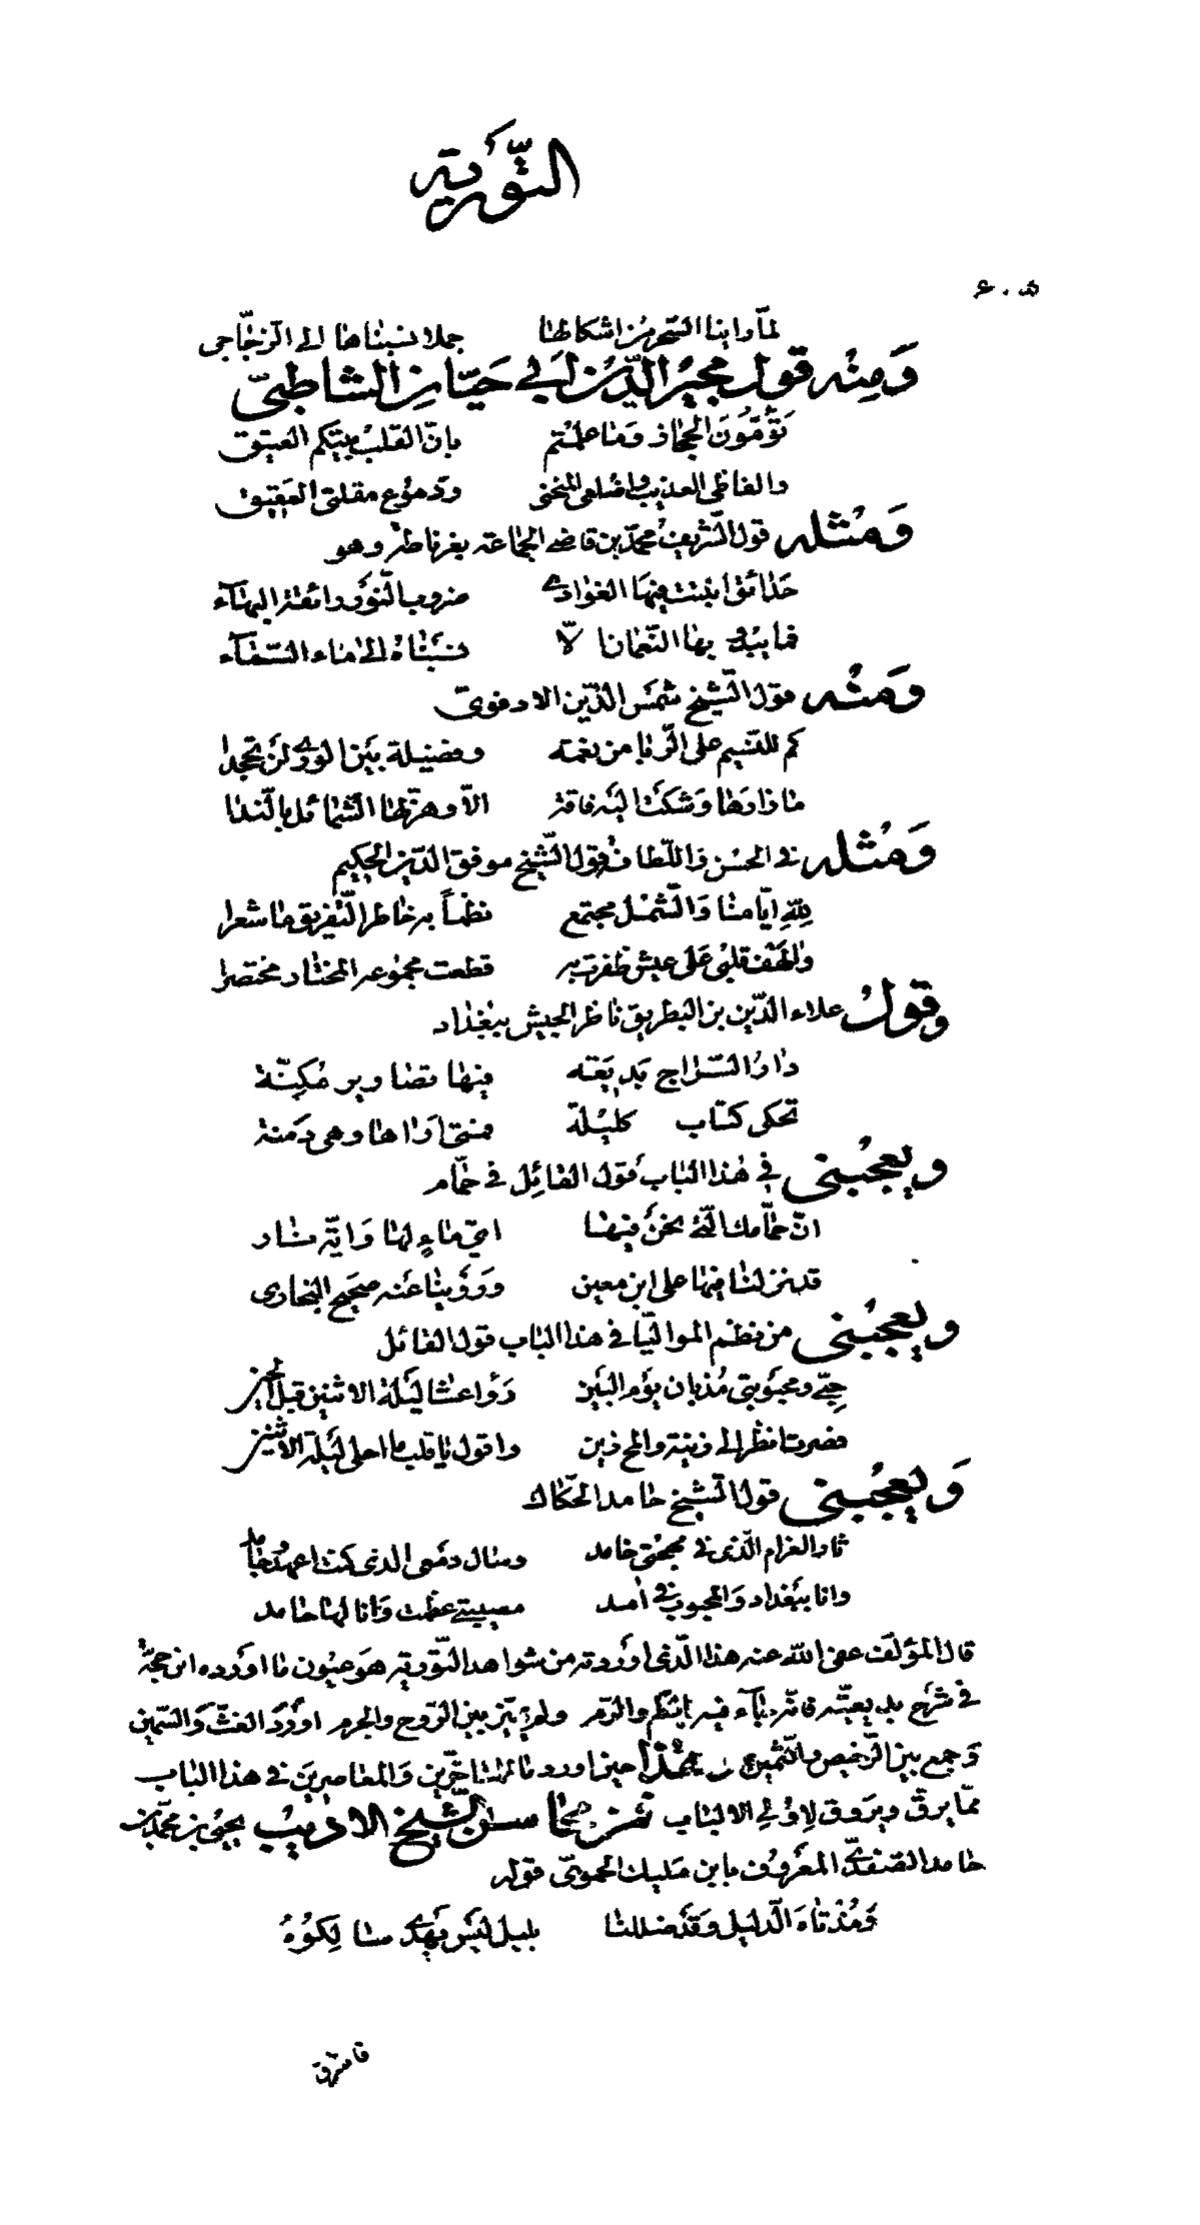 التّورية
لمّا راينا السّحر من اشكالها جملا نسبناها الى الزّجّاجي
وَمِنْه قول مجير الدّين ابي حيّان الشاطبيّ
تَؤمّون الحجاز وما علمتم بانّ القلب بيتكم العتيق
والفاظي العذيب واضلعي المنحنى ودموع مقلتي العقيق
وَمثله قول الشّريف محمّد بن قاضي الجماعة بغرناطة وهو
حدائق انبتت فيها الغوادي ضروب النّور رائقة البهآء
فما يبدو بها النّعمان الّا نسبناه الى ماء السّمآء
وَمنه قول الشّيخ شمس الدّين الادفوي
كم للنّسيم على الرّبا من نعمة وفضيلة بين الورى لن تجحدا
ما زارها وشكت اليه فاقة الّا وهزّ لها الشّمائل بالنّدا
وَمثله في الحسن واللّطافة قول الشّيخ موفّق الدّين الحكيم
لِلّهِ ايّامنا والشّمل مجتمع نظماً به خاطر التّفريق ما شعرا
والهف قلبي على عيش ظفرت به قطعت مجموعه المختار مختصرا
وقول علاء الدّين بن البطريق ناظر الجيش ببغداد
دار السّراج بديعة فيها تصاوير مُكِنّة
تحكي كتاب كليلة فمتى اراها وهي دمنة
ويعجبني في هذا الباب قول القائل في حمّام
انّ حمّامك الّتي نحن فيها ايّ ماءٍ لها وايّة نار
قد نزلنا فيها على ابن معين وروينا عنه صحيح البخاري
ويعجبني من نظم المواليّا في هذا الباب قول القائل
حِبّي ومحبوبتي مُذ بان يوم البين وواعدا ليلة الاثنين قبل
فصرت انظر الى زينة والمح زين واقول يا قلب ما احلى ليلة الاثنين
ويعجبني قول الشّيخ حامد الحكّاك
ثار الغرام الّذي في مهجتي خامد وسال دمعي الذي كنت اعهد جامد
وانا ببغداد والمحبوب في آمد مصيبتي عظمت وانا لها حامد
قال المؤلّف عفى اللّه عنه هذا الّذي اوردته من شواهد التّورية هو عيون ما اورده ابن حجّة
في شرح بديعيّته فانّه جآء فيه بالطمّ والرّم ولم يميّز بين الرّوح والجرم واورد الغثّ والسّمين
وجمع بين الرّخيص والثّمين وهذا حين اورد ما للمتأخّرين والمعاصرين في هذا الباب
ممّا يرقّ ويروق لاولي الالباب فمن محاسن الشّيخ الاديب يحيى بن محمّد بن
حامد الصّفديّ المعروف بابن مليك الحمويّ قوله
وَمُذ تاه الدّليل وقد ضللنا بليل ليس يهدى منا لكوهُ
فاشرق